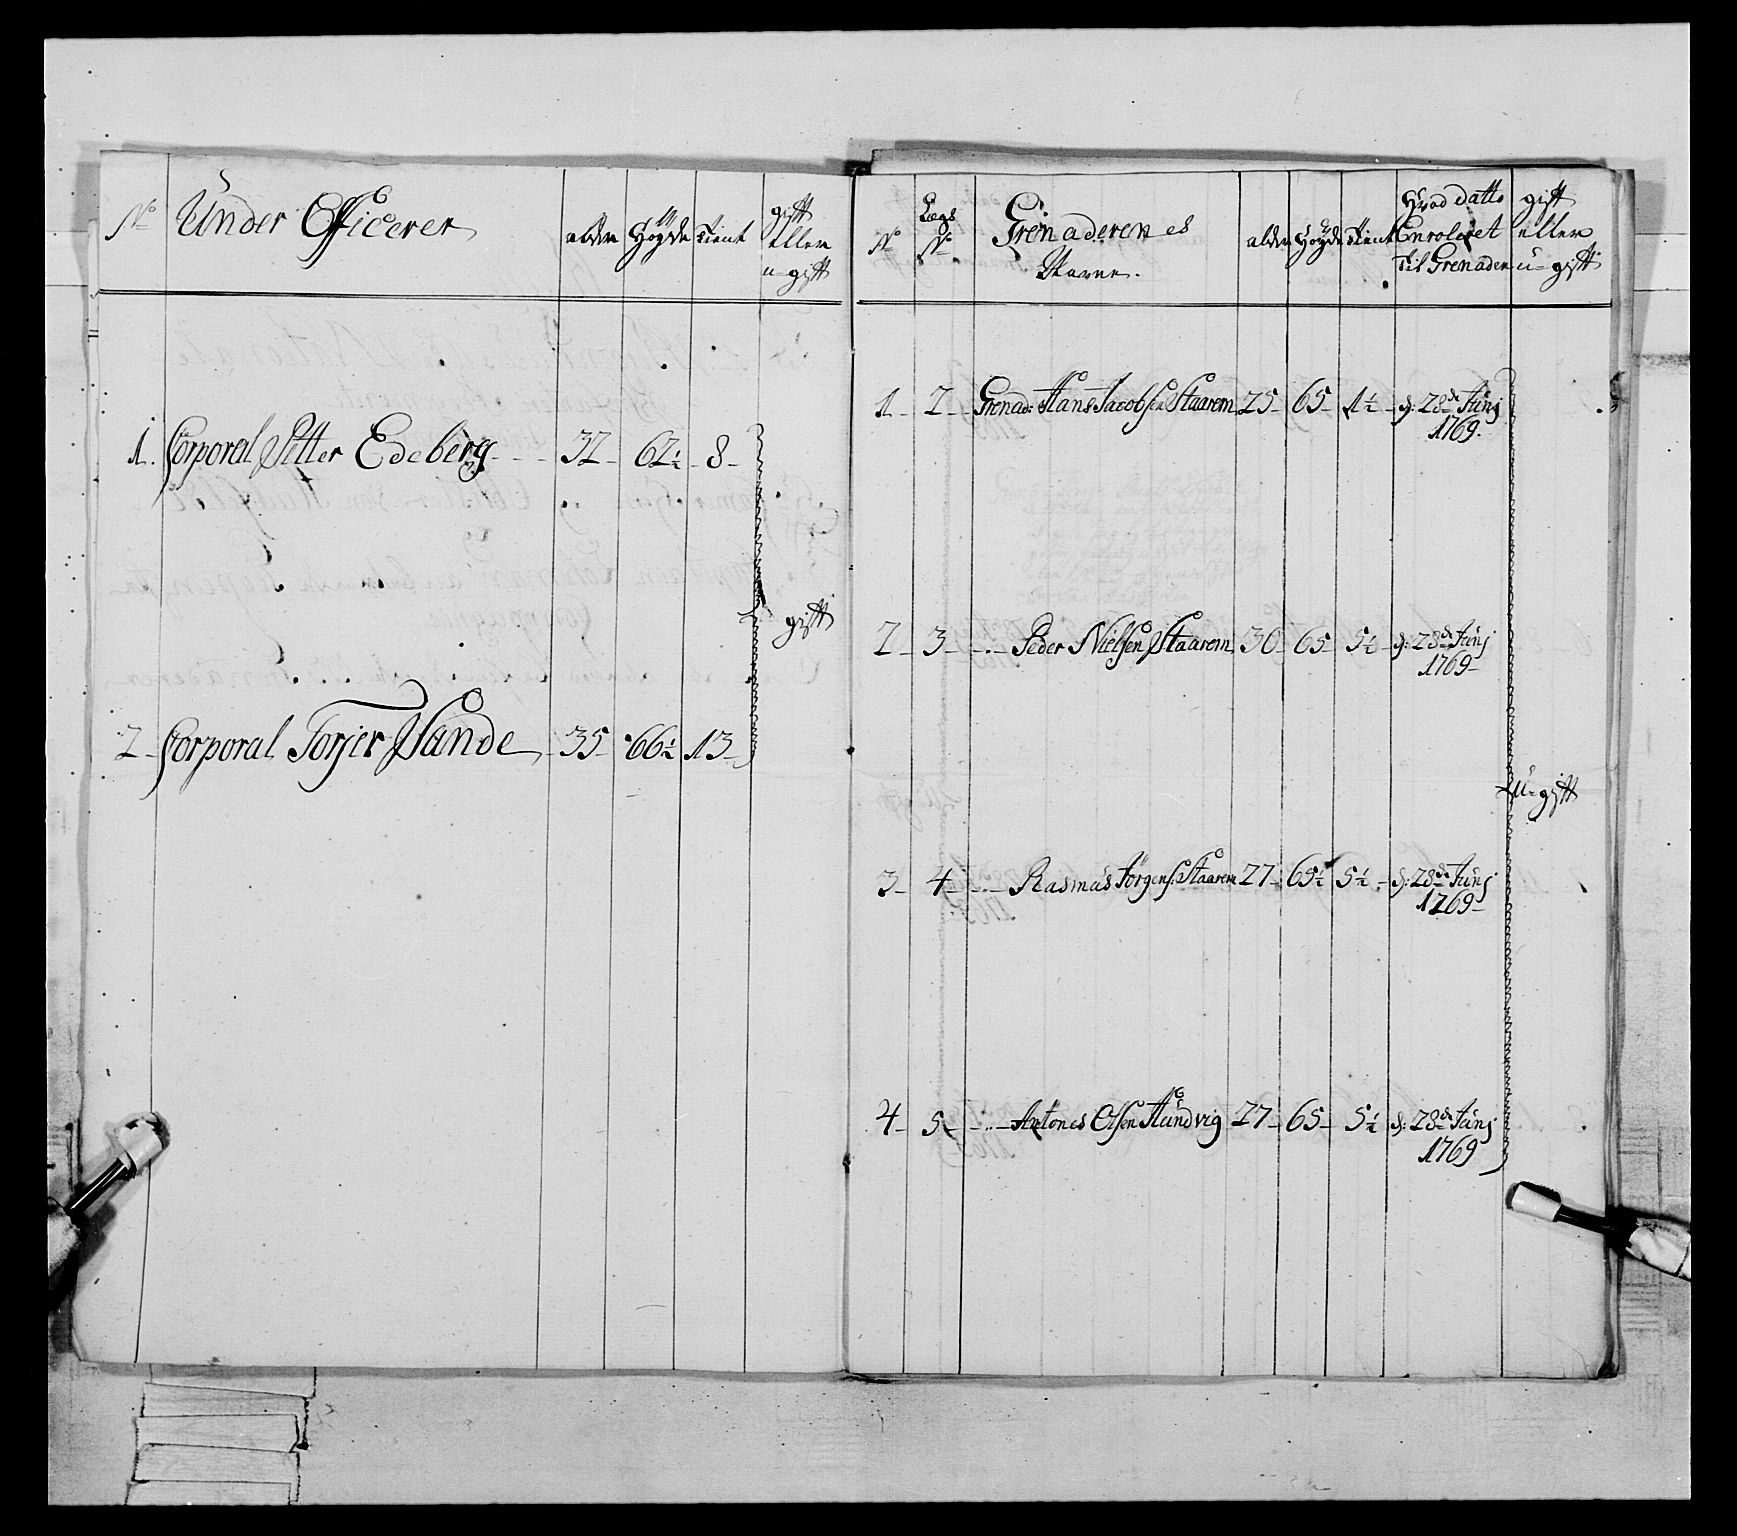 No Under Officerer alder Høyde tient gift Eller u-gift
1. Corporal Petter Edeberg - - - 32 - 62½ - 8 -
gift
2 - Corporal Torjer Sande - 35 - 66½ 13 -
No Legs No Grenaderenes Navne. alder Høyde tient Hvad datto Enrolleret til Grenader gift eller u-gift
1 - 2 - Grenad: Hans Jacobsen Staarem 25 - 65 - 1½ - d: 28de Junj
1769.
2 - 3 - - . - Peder Nielsen Staarem 30 - 65 5½ - d: 28de Junj
1769 -
U-gift
3 - 4 - - . - Rasmus Jørgens: Staarem 27 - 65½ 5½ - d: 28de Junj
1769 -
4 - 5 - - .. - Antones Olsen Hundvig 27 - 65 - 5½ d: 28de Junj
1769